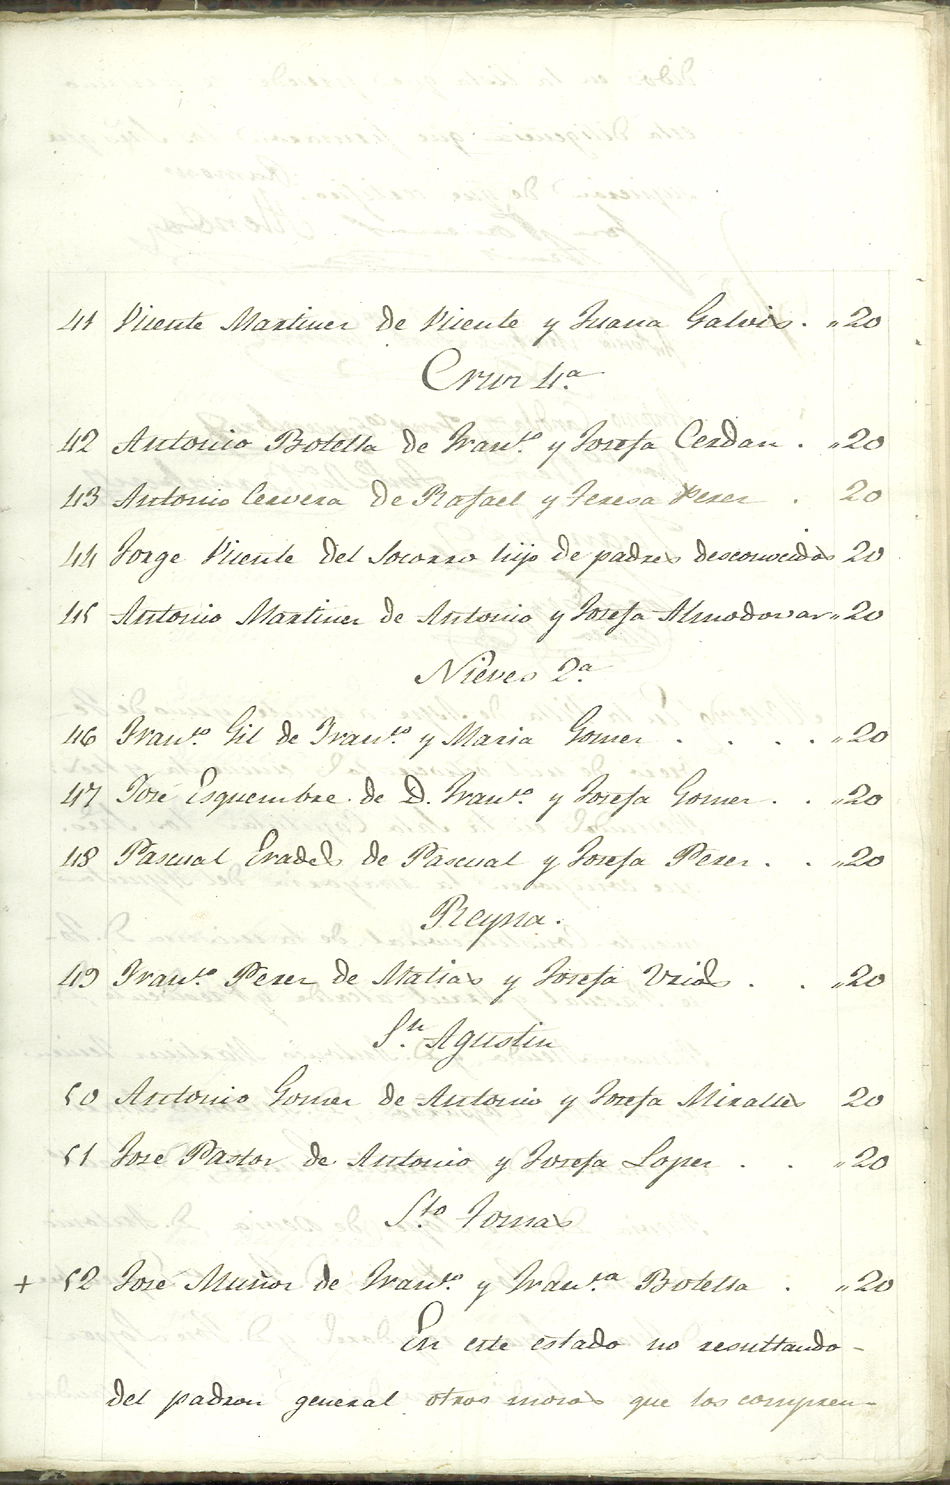 41 Vicente Martinez de Vicente y Juana Galvis. „20
Cruz 4.ª
42 Antonio Botella de Fran.co y Josefa Cerdan . „20
43 Antonio Cervera de Rafael y Teresa Perez . 20
44 Jorge Vicente del Socorro hijo de padres desconocidos 20
45 Antonio Martinez de Antonio y Josefa Almodovar „20
Nieves 2.ª
46 Fran.co Gil de Fran.co y Maria Gomez . . . . „20
47 José Esquembre de D. Fran.co y Josefa Gomez . . „20
48 Pascual Erades de Pascual y Josefa Perez . . „20
Reyna.
49 Fran.co Perez de Matias y Josefa Urios . . „20
S.n Agustin
50 Antonio Gomez de Antonio y Josefa Miralles 20
51 José Pastor de Antonio y Josefa Lopez . . „20
S.to Tomas
+ 52 José Muñoz de Fran.co y Fran.ca Botella . „20
En este estado no resultando
del padron general otros mozos que los compren-